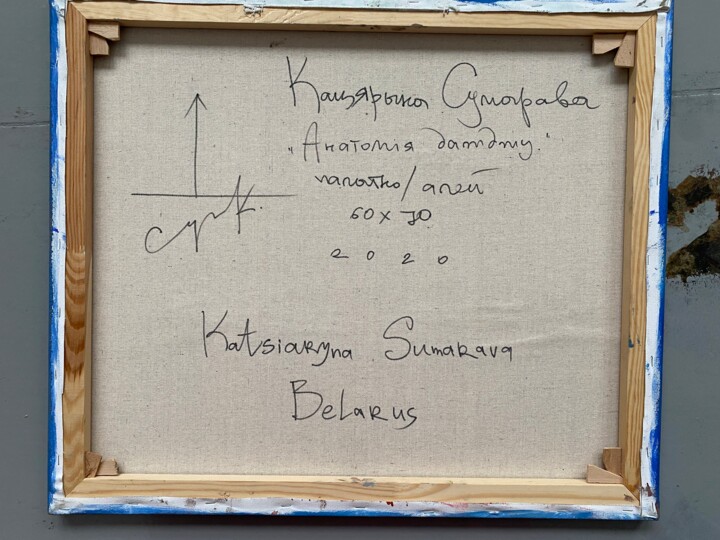 Кацярына Сумарава
„Анатомія дажджу."
палатно/алей
60 x 70
2020
Katsiaryna Sumarava
Belarus